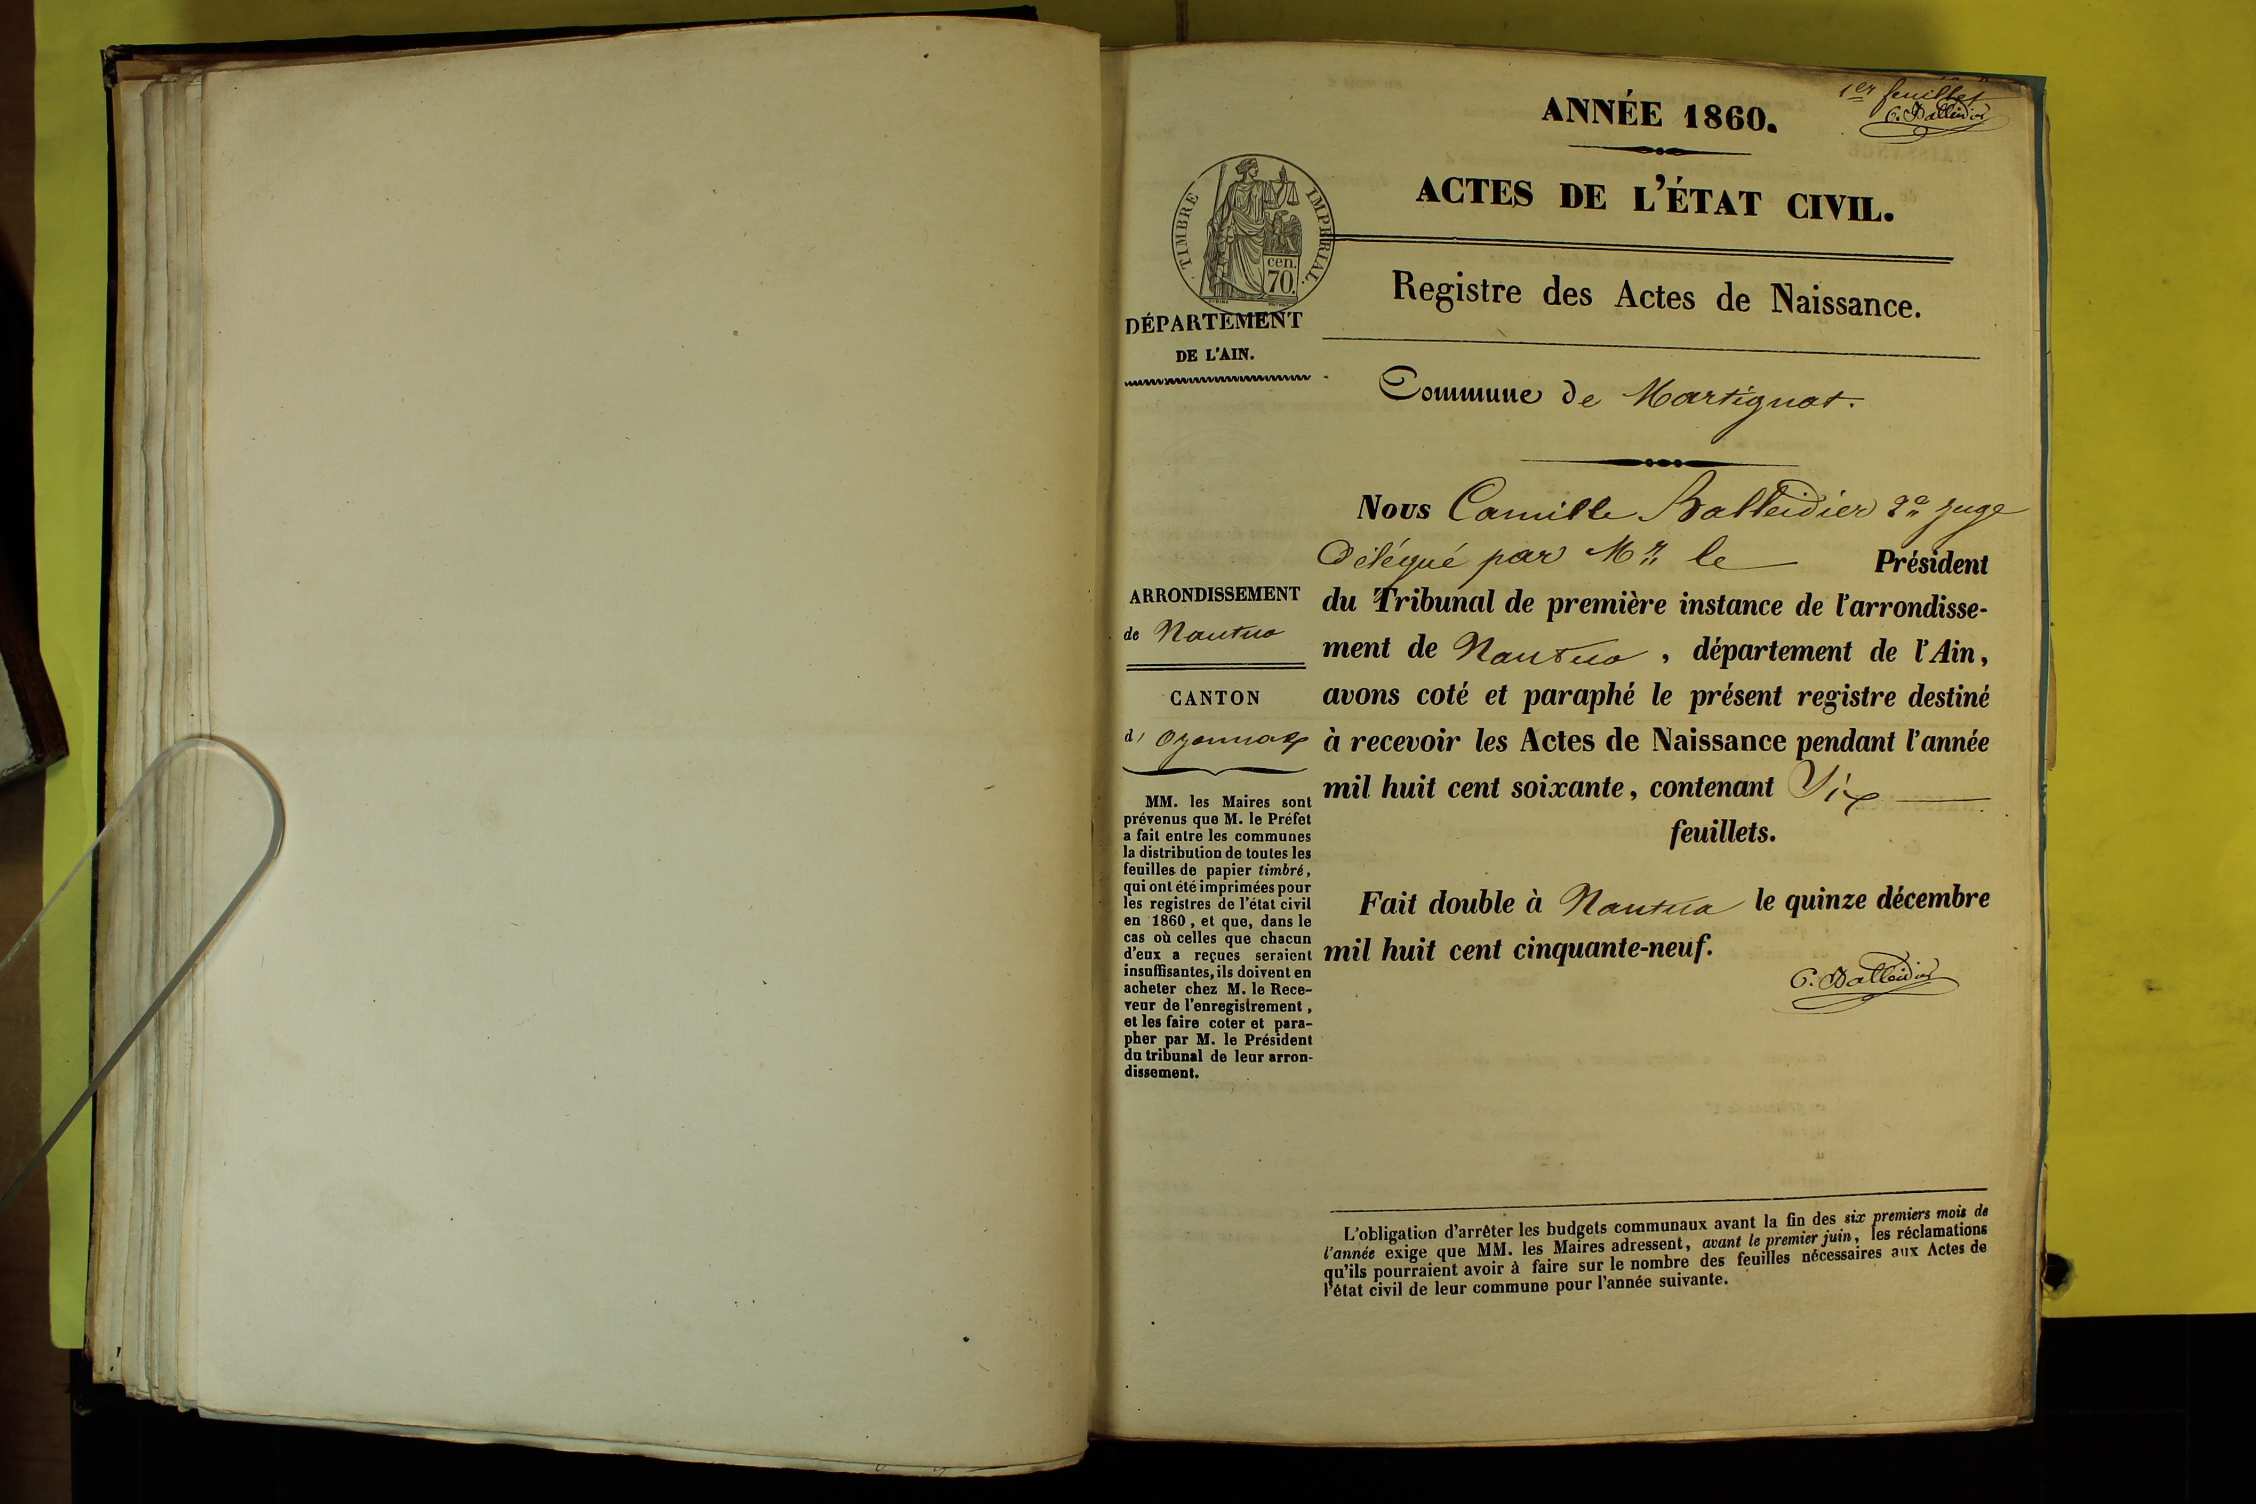 1er feuillet
C. Balleidier
ANNÉE 1860.
ACTES DE L'ÉTAT CIVIL.
TIMBRE IMPERIAL.
cen.
70.
Registre des Actes de Naissance.
DÉPARTEMENT
DE L'AIN.
Commune de Martignat.
ARRONDISSEMENT
de Nantua
CANTON
d' Oyonnax
MM. les Maires sont
prévenus que M. le Préfet
a fait entre les communes
la distribution de toutes les
feuilles de papier timbré,
qui ont été imprimées pour
les registres de l'état civil
en 1860, et que, dans le
cas où celles que chacun
d'eux a reçues seraient
insuffisantes, ils doivent en
acheter chez M. le Rece-
veur de l'enregistrement,
et les faire coter et para-
pher par M. le Président
du tribunal de leur arron-
dissement.
Nous Camille Balleidier juge
Délégué par Mr le Président
du Tribunal de première instance de l'arrondisse-
ment de Nantua, département de l'Ain,
avons coté et paraphé le présent registre destiné
à recevoir les Actes de Naissance pendant l'année
mil huit cent soixante, contenant Six
feuillets.
Fait double à Nantua le quinze décembre
mil huit cent cinquante-neuf.
C. Balleidier
L'obligation d'arrêter les budgets communaux avant la fin des six premiers mois de
l'année exige que MM. les Maires adressent, avant le premier juin, les réclamations
qu'ils pourraient avoir à faire sur le nombre des feuilles nécessaires aux Actes de
l'état civil de leur commune pour l'année suivante.